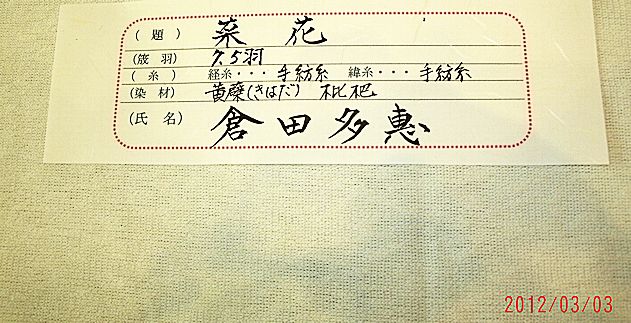 (題) 菜花
(筬羽) 7.5羽
(糸) 経糸・・・手紡糸 緯糸・・・手紡糸
(染材) 黄蘗(きはだ) 枇杷
(氏名) 倉田多惠
2012/03/03